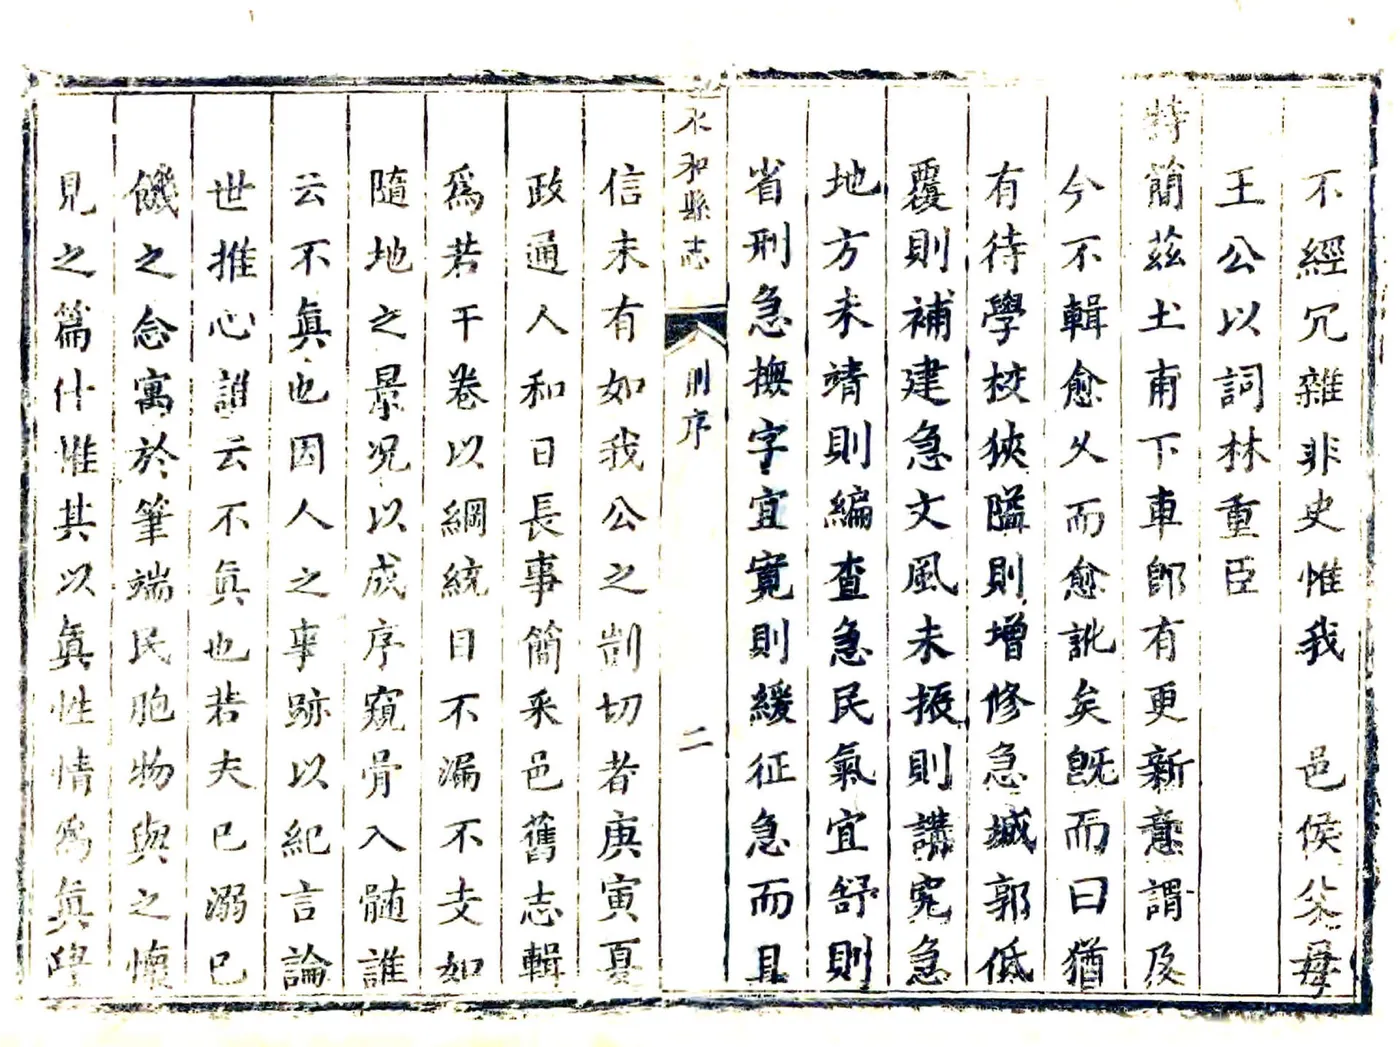 不經冗雜非史惟我　邑侯父母
王公以詞林重臣
特簡茲土甫下車卽有更新意謂及
今不輯愈久而愈訛矣旣而曰猶
有待學校狹隘則增修急城郭低
覆則補建急文風未振則講究急
地方未靖則編查急民氣宜舒則
省刑急撫字宜寬則緩征急而且
永和縣志
序
二
信未有如我公之剴切者庚寅夏
政通人和日長事簡采邑舊志輯
爲若干卷以綱統目不漏不支如
隨地之景况以成序窺骨入髄誰
云不眞也因人之事跡以紀言論
世推心誰云不眞也若夫已溺已
饑之念寓於筆端民胞物與之懷
見之篇什惟其以眞性情爲眞學